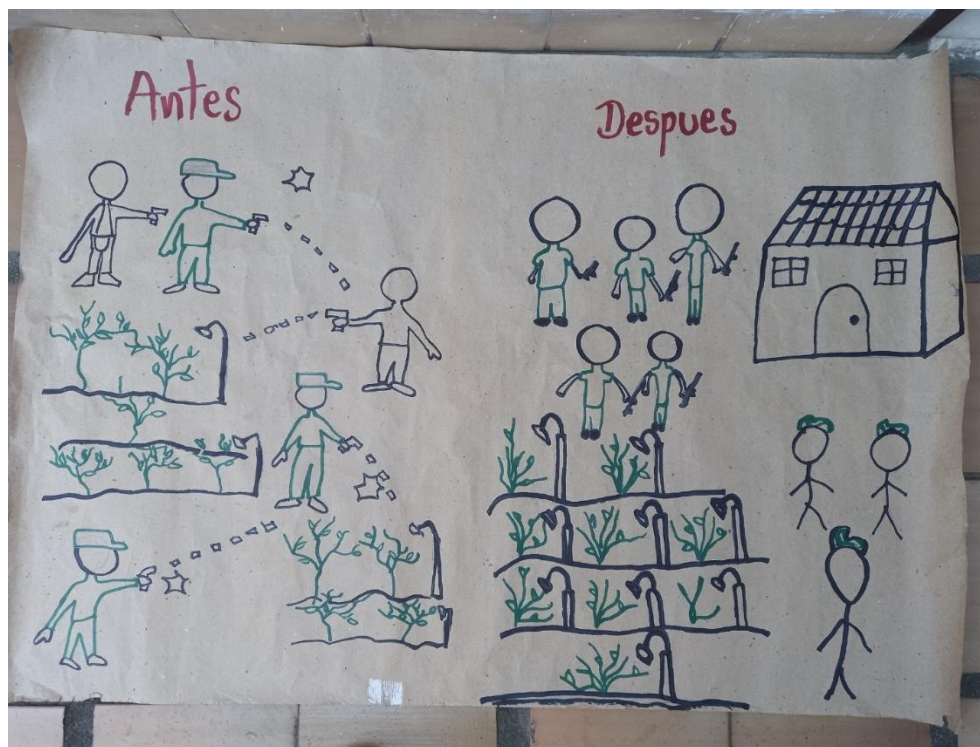 Antes
Despues